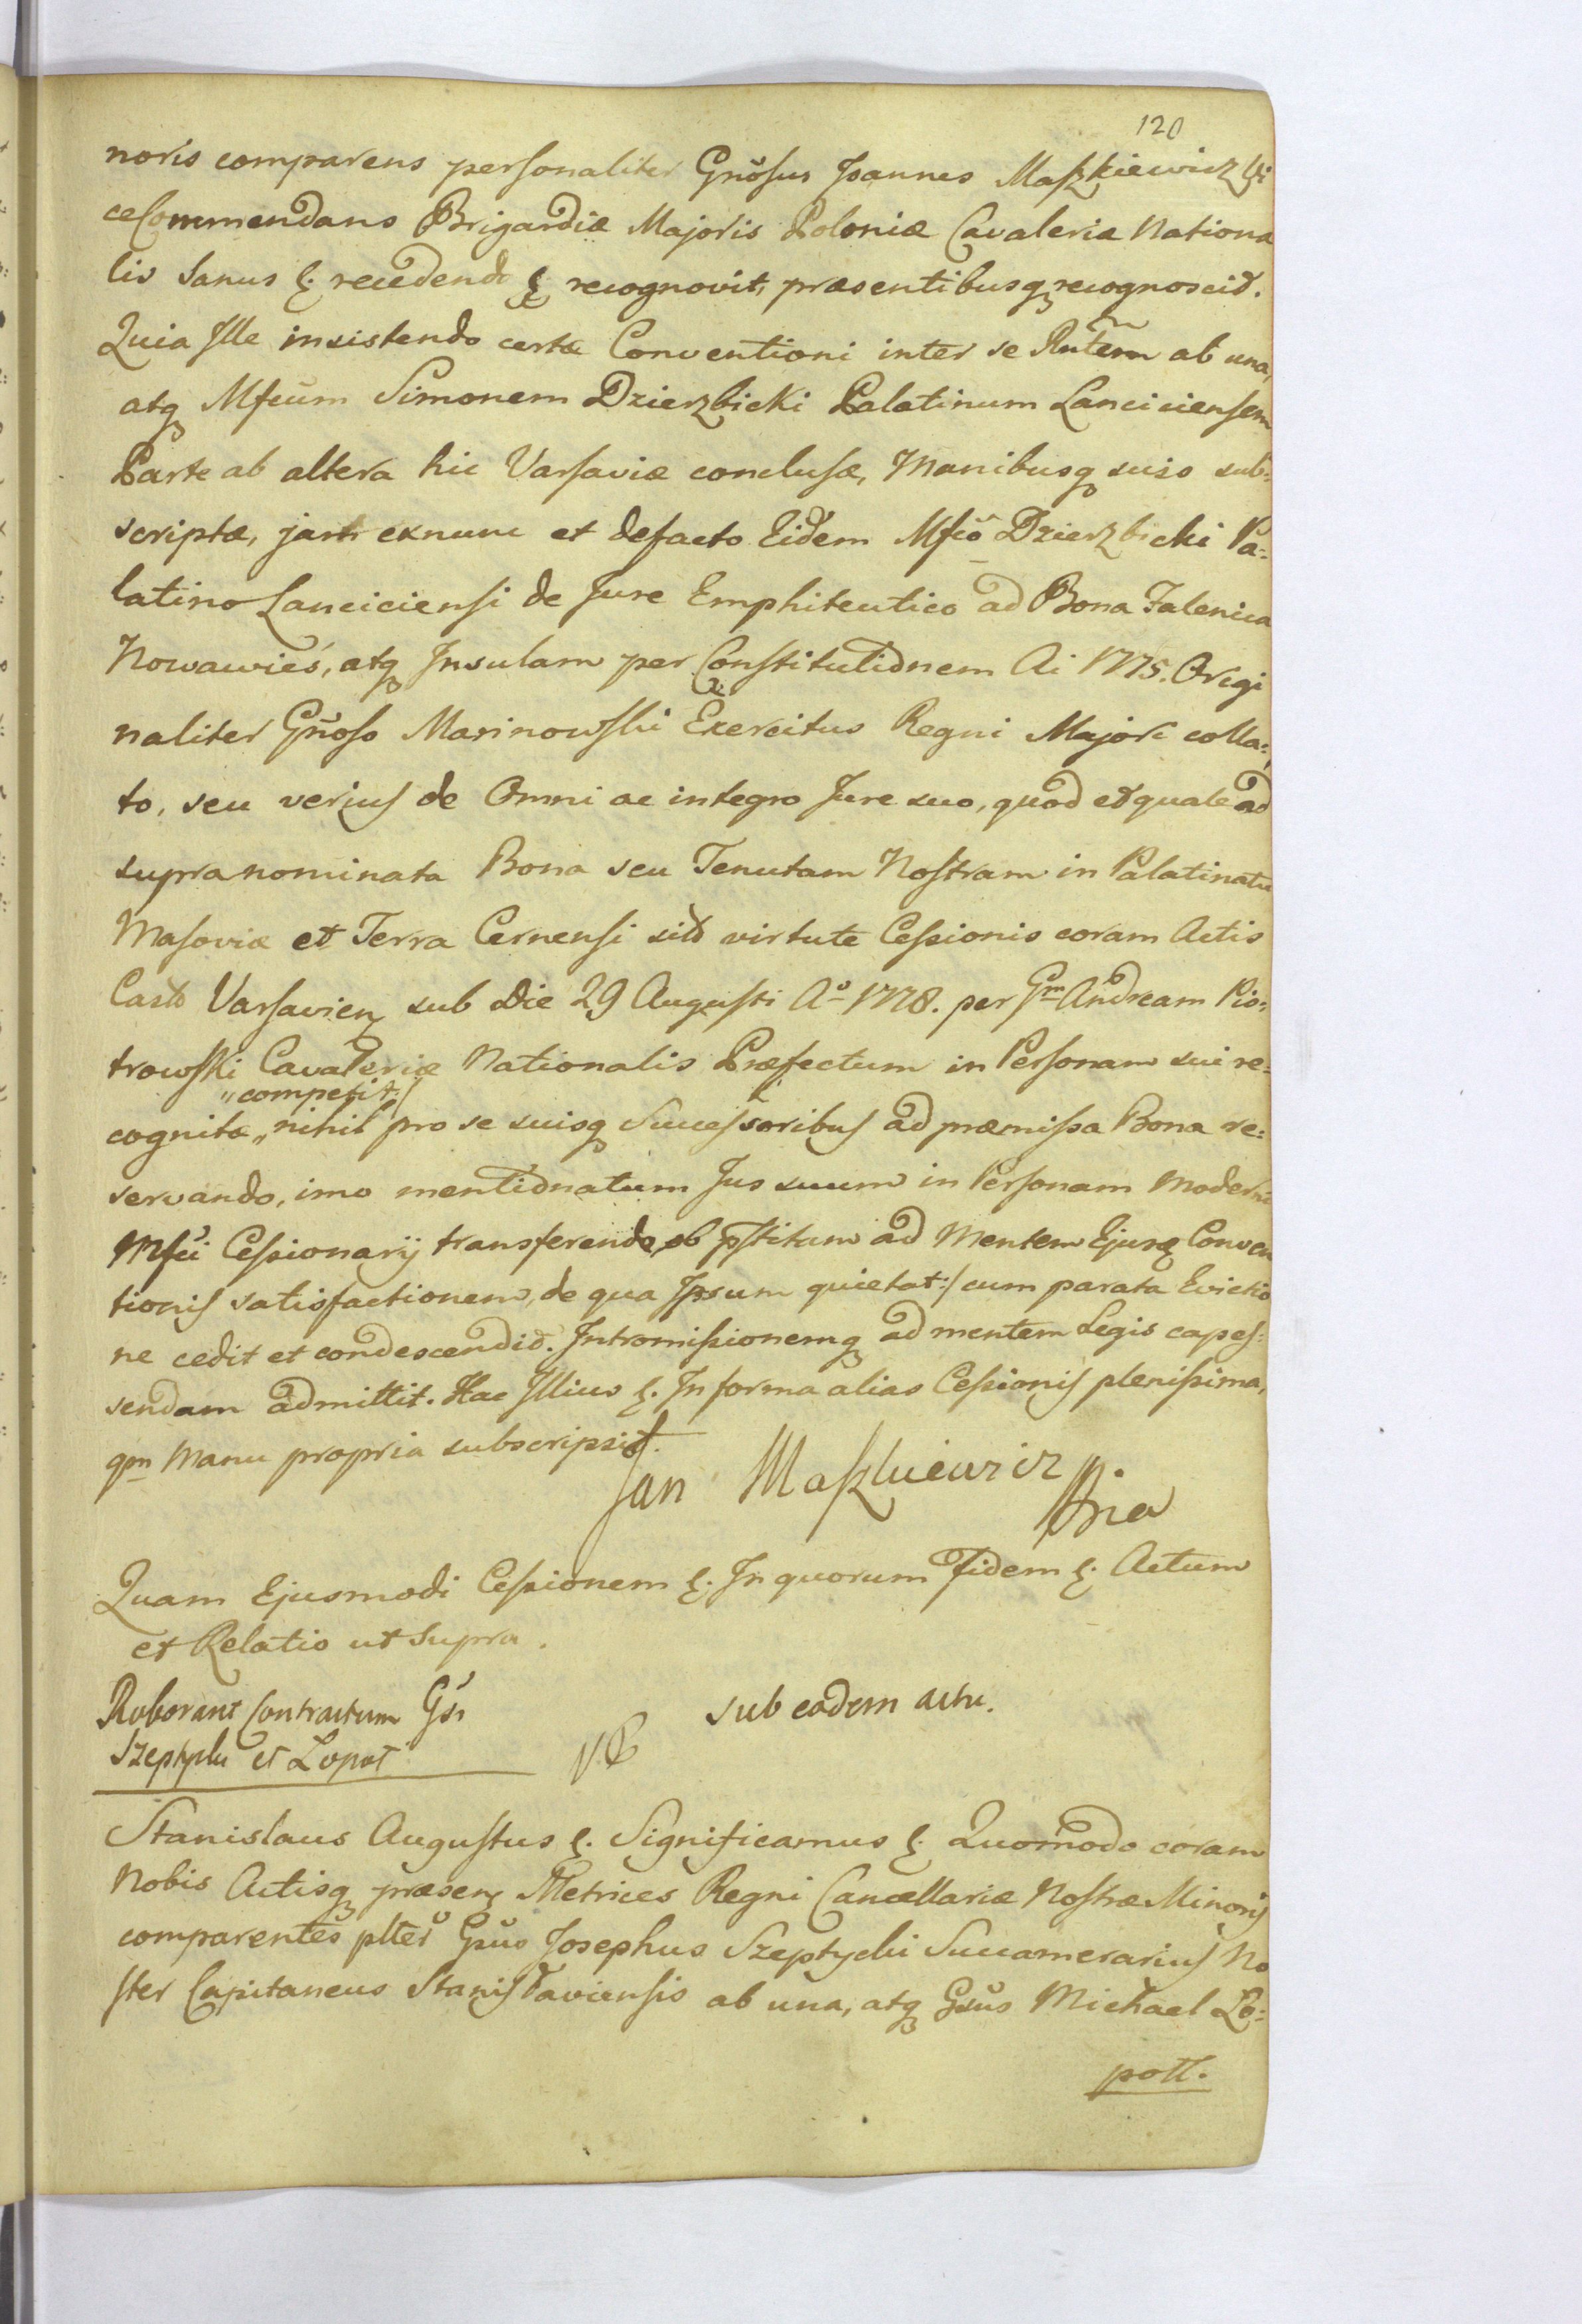 120
noris comparens personaliter Gnosus Joannes Maszkiewicz Vi
ceCommendans Brigardiæ Majoris Poloniæ Cavaleriæ Nationa
lis Sanus &. recedendo & recognovit, præsentibusq recognoscit.
Quia Ille insistendo certæ Conventioni inter se Rntem ab una,
atq Mfcum Simonem Dzierzbicki Palatinum Lanciciensem
Parte ab altera hic Varsaviæ conclusæ, Manibusq suis sub=
scriptæ, jam exnunc et defacto Eidem Mfco Dzierzbicki Pa=
latino Lanciciensi de Jure Emphiteutico ad Bona Falenica
Nowawieś, atq Insulam per Constitutionem Ai 1775. Origi
naliter Gnoso Marinowski Exercitus Regni Majori colla=
to, seu verius de Omni ac integro Jure suo, quod et quale ad
supra nominata Bona seu Tenutam Nostram in Palatinatu
Masoviæ et Terra Cernensi sito virtute Cessionis coram Actis
Castr Varsavien sub Die 29 Augusti Ao 1778. per Gm Andream Pio=
trowski Cavaleriæ Nationalis Præfectum in Personam sui re=
„competit:/
cognitæ „ nihil pro se suisq Successoribus ad præmissa Bona re=
servando, imo mentionatum Jus suum in Personam Moderni
Mfci Cessionarij transferendo, ob pstitam ad Mentem Ejusq Conven
tionis satisfactionem, de qua Ipsum quietat:/ cum parata Evictio
ne cedit et condescendit. Intromissionemq ad mentem Legis capes=
sendam admittit. Hac Illius &. In forma alias Cessionis plenissima,
qm Manu propria subscripsit.
Jan Maszkiewicz
mpria
Quam Ejusmodi Cessionem &. In quorum Fidem &. Actum
et Relatio ut Supra.
Roborant Contractum Gsi
Szeptycki et Lopot
sub eodem actu.
Stanislaus Augustus &. Significamus &. Quomodo coram
Nobis Actisq præsen Metrices Regni Cancellariæ Nostræ Minoris
comparentes plter Gsus Josephus Szeptycki Succamerarius No
ster Capitaneus Stanisłaviensis ab una, atq Gsus Michael Lo=
pott.